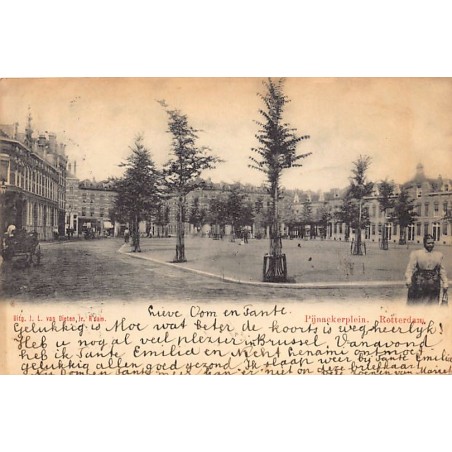 Uitg. J. L. van Dieten, Jr. R'dam.
Pijnackerplein. Rotterdam.
Lieve Oom en Tante
Gelukkig is Moe wat beter de koorts is weg heerlijk!
Heb u nogal veel plezier in Brussel. Vanavond
heb ik Tante Emilie en Nicht ontmoet
gelukkig allen goed gezond. Ik slaap weer bij Tante Emilie
er niet op deze briefkaart